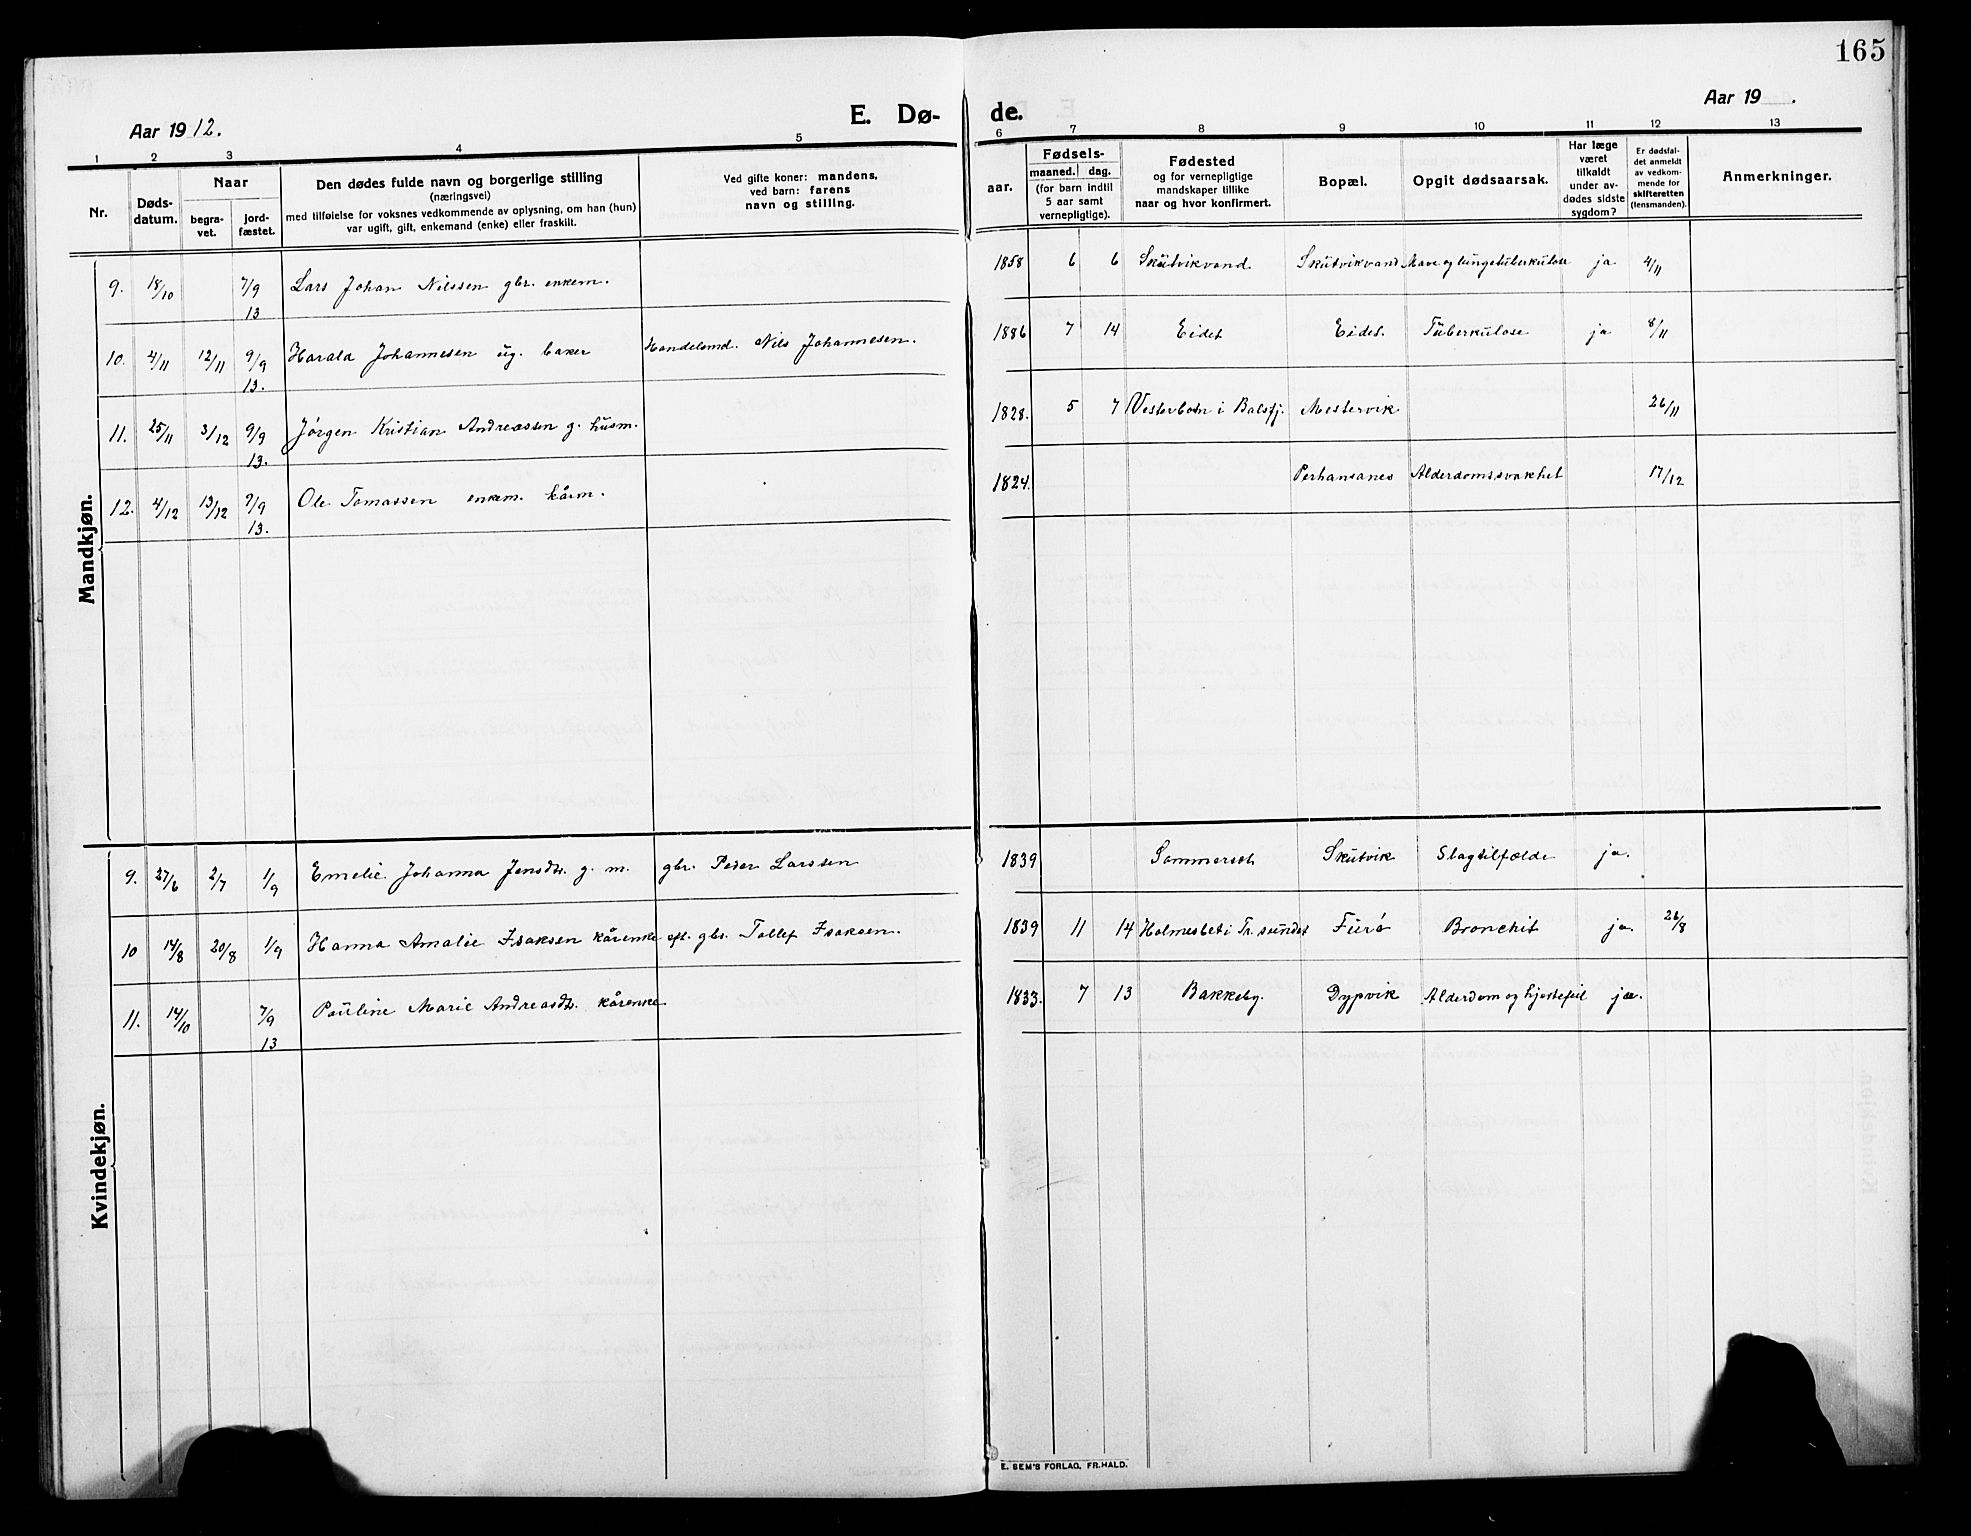 165
Aar 1912.
E. Dø-
de.
Aar 19 .
1 2 3 4 5 6 7 8 9 10 11 12 13
Nr.
Døds-
datum.
Naar
begra-
vet.
jord-
fæstet.
Den dødes fulde navn og borgerlige stilling
(næringsvei)
med tilføielse for voksnes vedkommende av oplysning, om han (hun)
var ugift, gift, enkemand (enke) eller fraskilt.
Ved gifte koner: mandens,
ved barn: farens
navn og stilling.
aar.
Fødsels-
maaned. dag.
(for barn indtil
5 aar samt
vernepligtige).
Fødested
og for vernepligtige
mandskaper tillike
naar og hvor konfirmert.
Bopæl.
Opgit dødsaarsak.
Har læge
været
tilkaldt
under av-
dødes sidste
sygdom?
Er dødsfal-
det anmeldt
av vedkom-
mende for
skifteretten
(lensmanden).
Anmerkninger.
Mandkjøn.
9. 18/10 7/9 13 Lars Johan Nilssen gbr. enkem. 1858 6 6 Skutvikvand Skutvikvand Mave og lungetuberkulose ja 4/11
10. 4/11 12/11 9/9 13. Harald Johannesen ug. baker Handelsmd. Nils Johannesen. 1886 7 14 Eidet Eidet. Tuberkulose ja 8/11
11. 25/11 3/12 9/9 13. Jørgen Kristian Andreassen g. husm. 1828. 5 7 Vesterbotn i Balsfj. Mestervik 26/11
12. 4/12 13/12 7/9 13. Ole Tomassen enkem. kårm. 1824. Perhansanes Alderdomssvakhet 17/12
Kvindekjøn.
9. 27/6 2/7 1/9 Emelie Johanna Jensdtr. g. m. gbr. Peder Larssen 1839 Sommerset Skutvik Slagtilfælde ja.
10 14/8 20/8 1/9 Hanna Amalie Isaksen kårenke eft. gbr. Tollef Isaksen. 1839 11 14 Holmesbet i Tr. sundet Furø Bronchit ja. 26/8
11. 14/10 7/9 13 Pauline Marie Andreasdtr. kårenke 1833. 7 13 Bakkeby. Dypvik Alderdom og hjertefeil ja.
E. SEM'S FORLAG, FR.HALD.